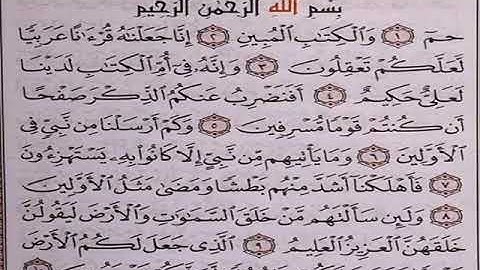 بِسْمِ اللَّهِ الرَّحْمَٰنِ الرَّحِيمِ
حمٓ ١ وَالْكِتَابِ الْمُبِينِ ٢ إِنَّا جَعَلْنَاهُ قُرْءَانًا عَرَبِيًّا
لَعَلَّكُمْ تَعْقِلُونَ ٣ وَإِنَّهُ فِي أُمِّ الْكِتَابِ لَدَيْنَا
لَعَلِيٌّ حَكِيمٌ ٤ أَفَنَضْرِبُ عَنكُمُ الذِّكْرَ صَفْحًا
أَن كُنتُمْ قَوْمًا مُّسْرِفِينَ ٥ وَكَمْ أَرْسَلْنَا مِن نَّبِيٍّ فِي
الْأَوَّلِينَ ٦ وَمَا يَأْتِيهِم مِّن نَّبِيٍّ إِلَّا كَانُوا بِهِ يَسْتَهْزِءُونَ
٧ فَأَهْلَكْنَا أَشَدَّ مِنْهُم بَطْشًا وَمَضَىٰ مَثَلُ الْأَوَّلِينَ
٨ وَلَئِن سَأَلْتَهُم مَّنْ خَلَقَ السَّمَاوَاتِ وَالْأَرْضَ لَيَقُولُنَّ
خَلَقَهُنَّ الْعَزِيزُ الْعَلِيمُ ٩ الَّذِي جَعَلَ لَكُمُ الْأَرْضَ